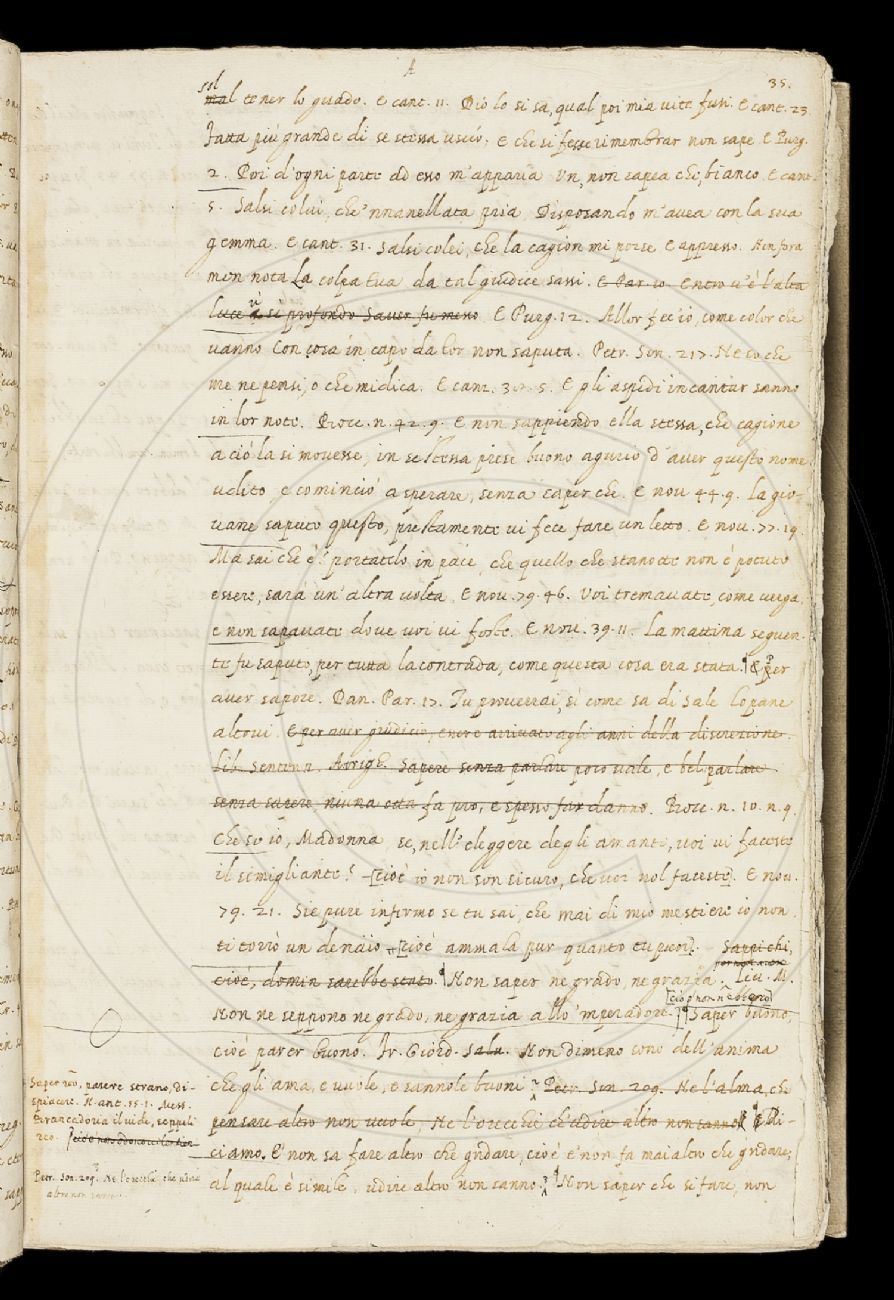 A
35.
sol
mal tener lo guado. E cant. 11. Dio lo si sa, qual poi mia vita fusi. E cant. 23.
Fatta più grande di se stessa uscio: e che si fesse rimembrar non sape. E Purg.
2. Poi d'ogni parte ad esso m'apparia Un, non sapea che, bianco. E cant.
5. Salsi colui, che 'nnanellata pria Disposando m'avea con la sua
gemma. E cant. 31. Salsi colei, che la cagion mi porse. E appresso. Non fora
men nota La colpa tua da tal giudice sassi. E Par. 10. Entro v'è l'alta
luce u' sì profondo Saver fu messo E Purg. 12. Allor fec'io, come color che
vanno Con cosa in capo da lor non saputa. Petr. Son. 217. Ne so che
me ne pensi, o che mi dica. E canz. E gli aspidi incantar sanno
in lor note. Bocc. n. 42. 9. E non sappiendo ella stessa, che cagione
a ciò la si movesse, in se stessa prese buono agurio d'aver questo nome
udito, e cominciò a sperare, senza saper che. E nov. 44. 9. La gio-
vane saputo questo, prestamente vi fece fare un letto. E nov. 77. 19.
Ma sai che è? portatelo in pace, che quello che stanotte non è potuto
essere, sarà un'altra volta. E nov. 79. 46. Voi tremavate, come verga,
e non sapavate dove voi vi foste. E nov. 39. 11. La mattina seguen-
te fu saputo, per tutta la contrada, come questa cosa era stata. ¶ & per
aver sapore. Dan. Par. 17. Tu proverrai, sì come sa di sale Lo pane
altrui. E per aver giudicio, essere arrivato agli anni della discrezione.
Lib. Sentenz. Arrigh. Sapere senza parlare poco vale, e bel parlare
senza sapere, niuna otta fa pro, e spesso fa danno. Bocc. n. 10. n. 9.
Che so io, Madonna, se, nell'eleggere degli amanti, voi vi faceste
il simigliante? [cioè io non son sicuro, che voi nol faceste]. E nov.
79. 21. Sie pure infermo se tu sai, che mai di mio mestiere io non
ti torrò un denaio [cioè ammala pur quanto tu puoi]. Sappi chi,
cioè, domin sarebbe stato. Non saper ne grado, ne grazia. Liv. M.
[cioè non n'ebbero]
Non ne seppono ne grado, ne grazia allo 'mperadore.] ¶ Saper buono,
cioè parer buono. Fr. Giord. Salv. Nondimeno sono dell'anima
che gli ama, e vuole, e sannole buoni Petr. Son. 209. Ne l'alma, che
pensare altro non vuole, Ne l'orecchie ch'udire altro non sanno. ¶ Di-
ciamo. E' non sa fare altro che gridare, cioè e' non fa mai altro che gridare;
al quale è simile, udire altro non sanno. ¶ Non saper che si fare, non
Saper reo, parere strano, di-
spiacere. N. ant. 55. 1. Mess.
Beroncadoria il vide, seppeli
reo.
Petr. Son. 209. Ne l'orecchie, che udire
altro non sanno.